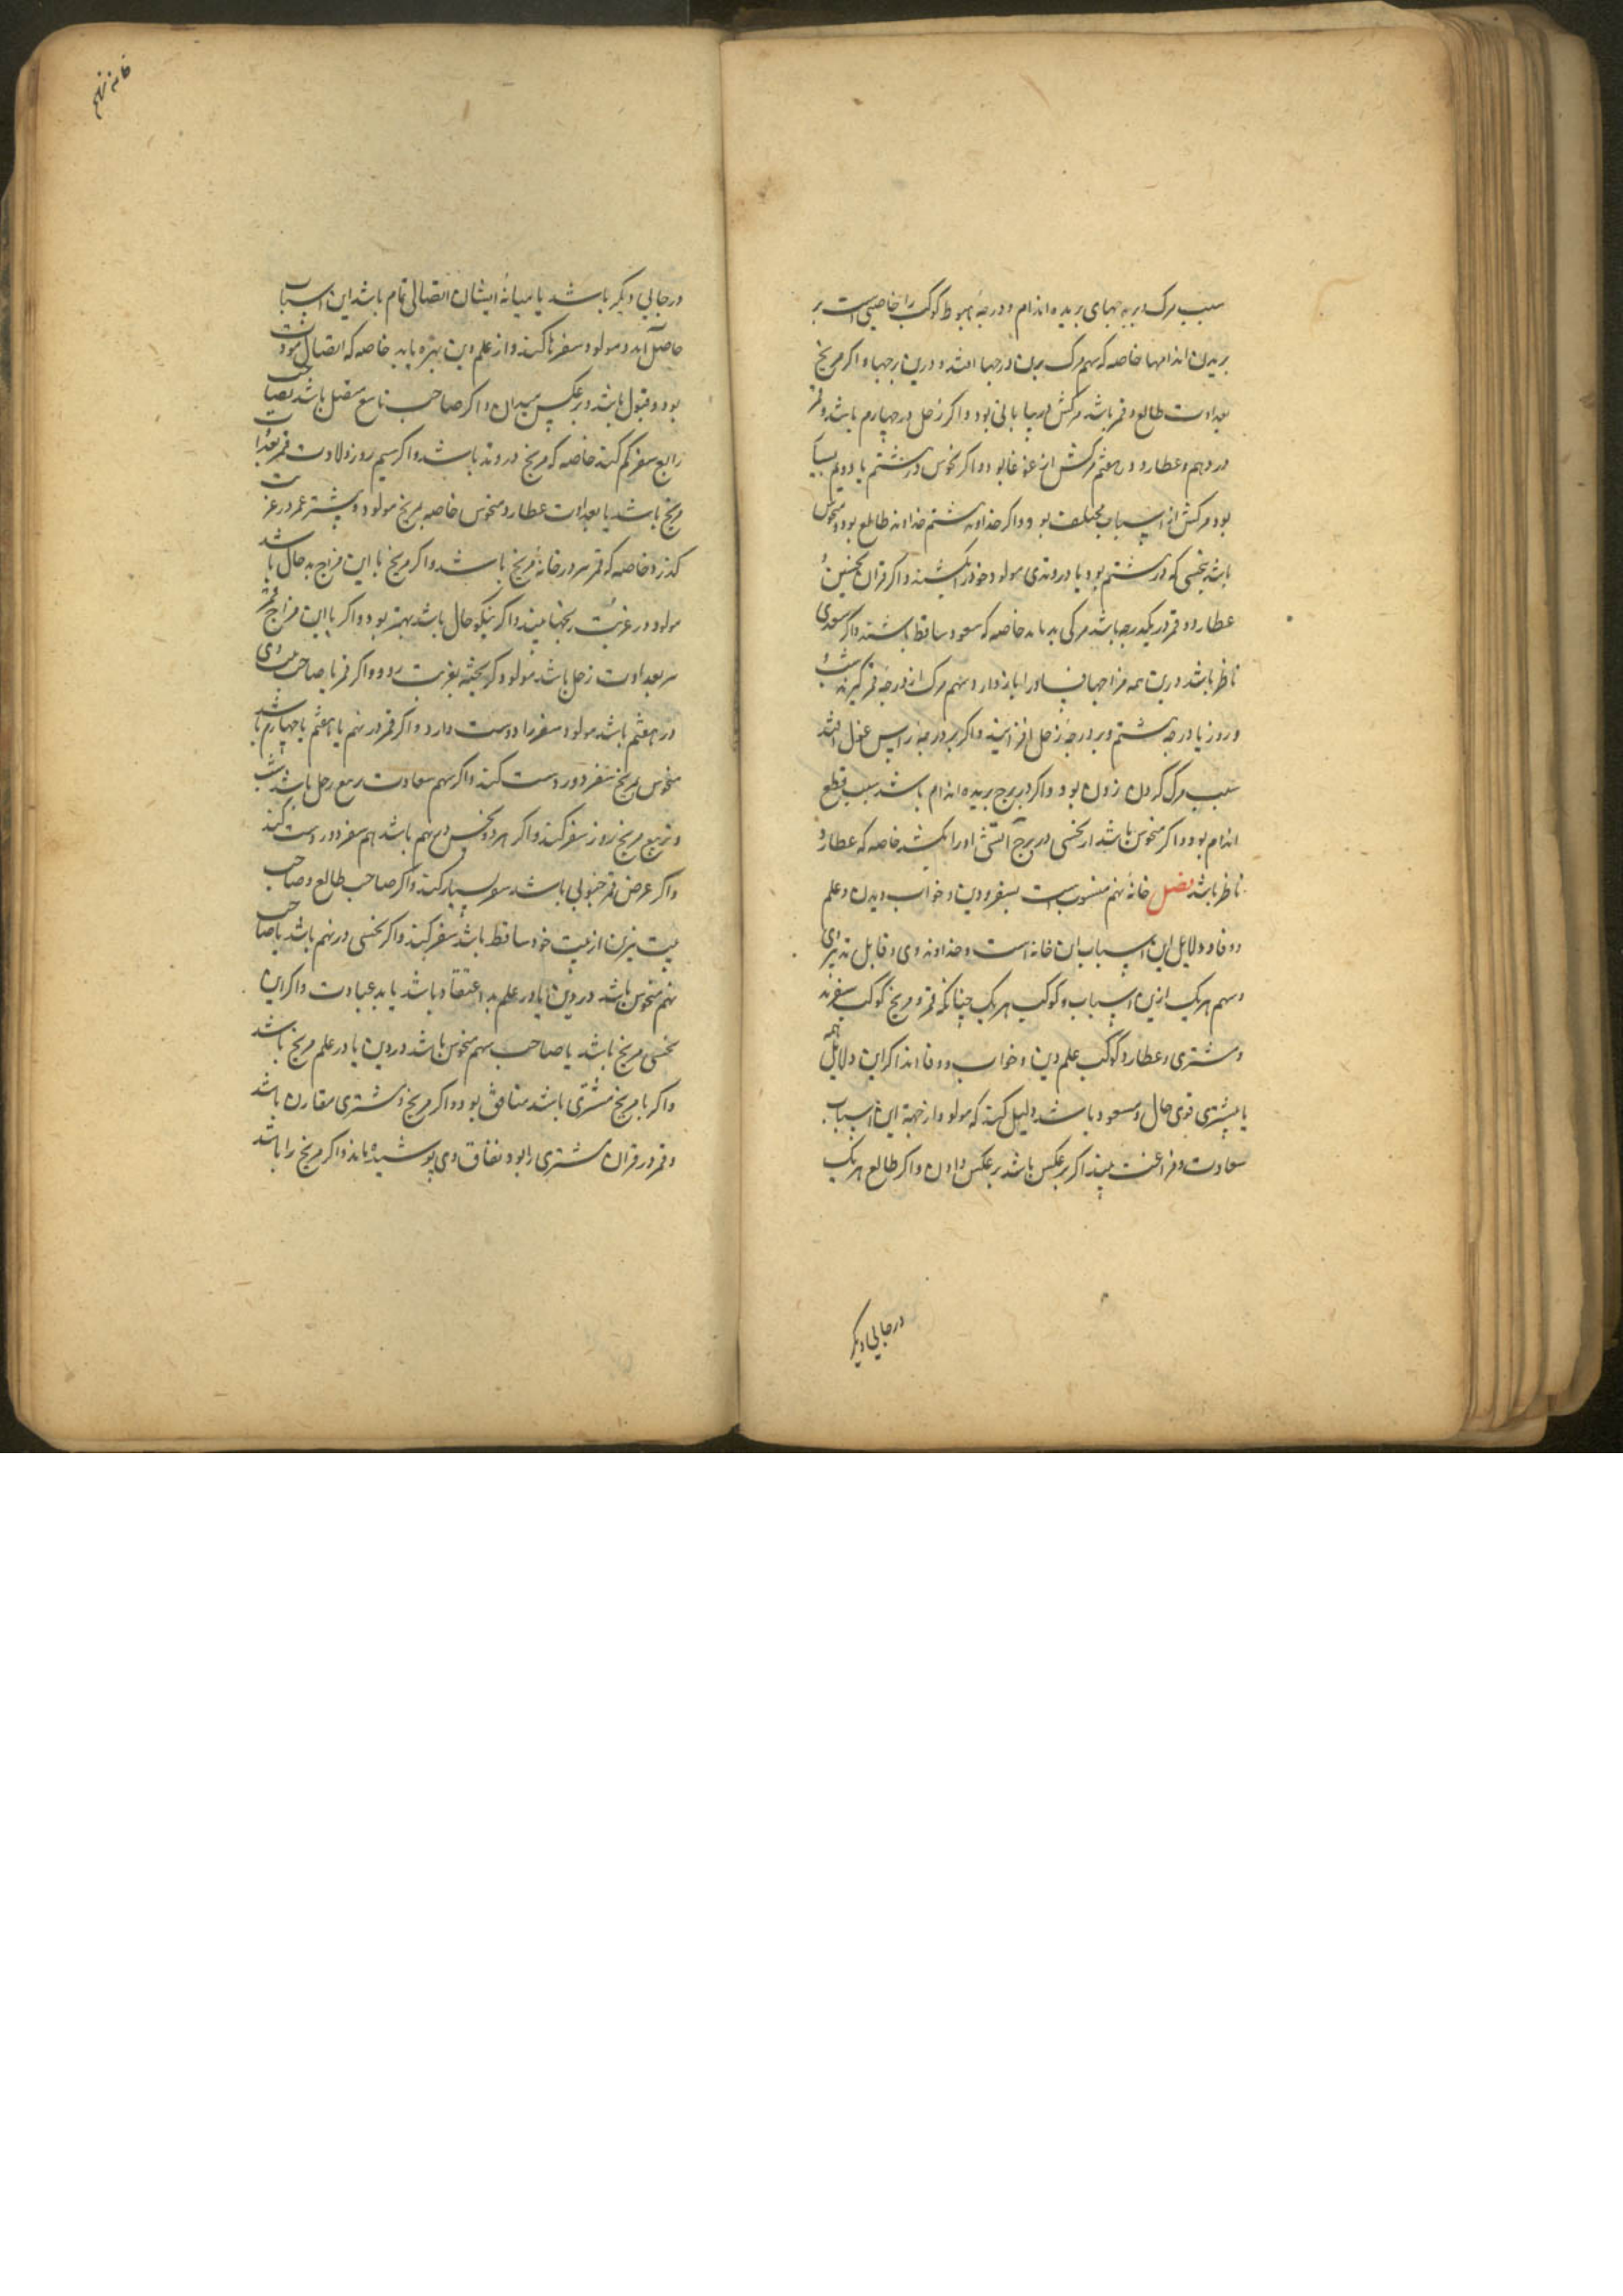 سبب مرک در برجهای بریده اندام و درجهٔ هبوط کوکب را خاصیتی است بر
بریدن اندامها خاصه که سهم مرک بدان درجها افتد و درین برجها و اکر مریخ
بعداوت طالع و قمر باشد مرکش در بیابانی بود و اکر زحل در چهارم باشد و قمر
در دهم و عطارد در هفتم مرکش از غوغا بود و اکر نحوس در هشتم یا دویم بسیار
بود مرکش از اسباب مختلف بود و اکر خداوند هشتم خداوند طالع بود و منحوس
باشد بنحسی که در هشتم بود یا در وتدی مولود خود را بکشد و اکر قران نحسین و
عطارد و قمر در یکدرجه باشد مرکی بد باشد خاصه که سعود ساقط باشند و اکر سعدی
ناظر باشد درین همه مزاجها فساد را باز دارد و سهم مرک از درجه قمر کیرند شب و
روز تا درجه هشتم و بر درجه زحل افزایند و اکر بر درجه راس غول افتد
سبب مرک کردن زدن بود و اکر در برج بریده اندام باشد سبب قطع
اندام بود و اکر منحوس باشد از نحسی در برج آتشی او را بکشد خاصه که عطارد
ناظر باشد فصل خانهٔ نهم منسوب است بسفر و دین و خواب دیدن و علم
و وفا و دلایل این اسباب این خانه است و خداوند وی و قابل تدبیر وی
و سهم هر یک ازین اسباب و کوکب هر یک چنانکه قمر و مریخ کوکب سفرند
و مشتری و عطارد کوکب علم دین و خواب و وفا اند اکر این دلایل همه
یا بیشتری قوی حال و مسعود باشد دلیل کند که مولود از جهة این اسباب
سعادت و فراغت بیند اکر برعکس باشد برعکس دان و اکر طالع هر یک
در جایی دیکر
خانه نهم
در جایی دیکر باشد یا میانهٔ ایشان اتصالی تمام باشد این اسباب
حاصل آید و مولود سفرها کند و از علم دین بهره یابد خاصه که اتصال مودت
بود و قبول باشد و برعکس میدان و اکر صاحب تاسع متصل باشد بصاحب
رابع سفر کم کند خاصه که مریخ در وتد باشد و اکر سیم روز ولادت قمر بعداوت
مریخ باشد یا بعداوت عطارد منحوس خاصه بمریخ مولود بیشتر عمر در غربت
کذرد خاصه که قمر در خانهٔ مریخ باشد و اکر مریخ با این مزاج بد حال باشد
مولود در غربت رنجها بیند و اکر نیکو حال باشد بهتر بود و اکر با این مزاج قمر
بعداوت زحل باشد مولود کریخته بغربت رود و اکر قمر یا صاحب بیت وی
در هفتم باشد مولود سفر را دوست دارد و اکر قمر در نهم یا هفتم یا چهارم باشد
منحوس بمریخ سفر دور دست کند و اکر سهم سعادت بتربیع زحل باشد شب
و تربیع مریخ روز سفر کند و اکر هر دو نحس در نهم باشد هم سفر دور دست کند
و اکر عرض قمر جنوبی باشد سفر بسیار کند و اکر صاحب طالع و صاحب
بیت نیرین از بیت خود ساقط باشد سفر کند و اکر نحسی در نهم باشد یا صاحب
نهم منحوس باشد در دین یا در علم بد اعتقاد باشد یا بد عبادت و اکر این
نحس مریخ باشد یا صاحب سهم منحوس باشد در دین یا در علم مریخ باشد
و اکر با مریخ مشتری باشد منافق بود و اکر مریخ و مشتری مقارن باشد
و قمر در قران مشتری را بود نفاق وی پوشیده ماند و اکر مریخ را باشد